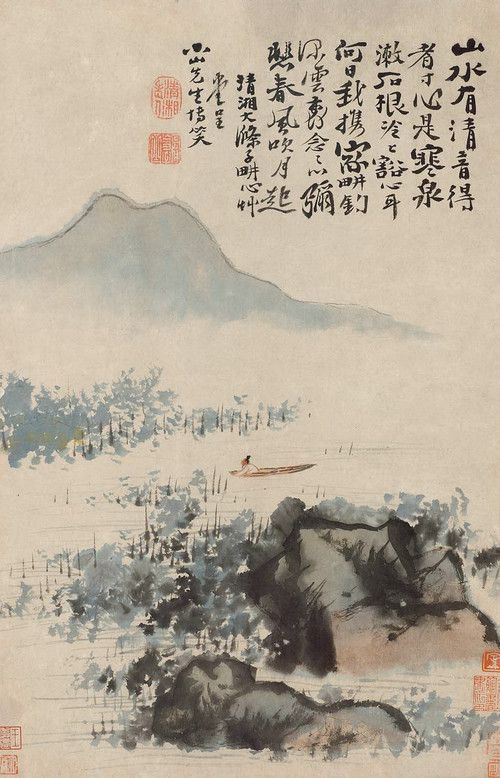 山水有清音得
者寸心是寒泉
漱石根冷〻豁心耳
何日我携家畊釣
深雲裏念之彌
春風吹月起
清湘大滌子畊心艸
堂呈
小山先生博笑